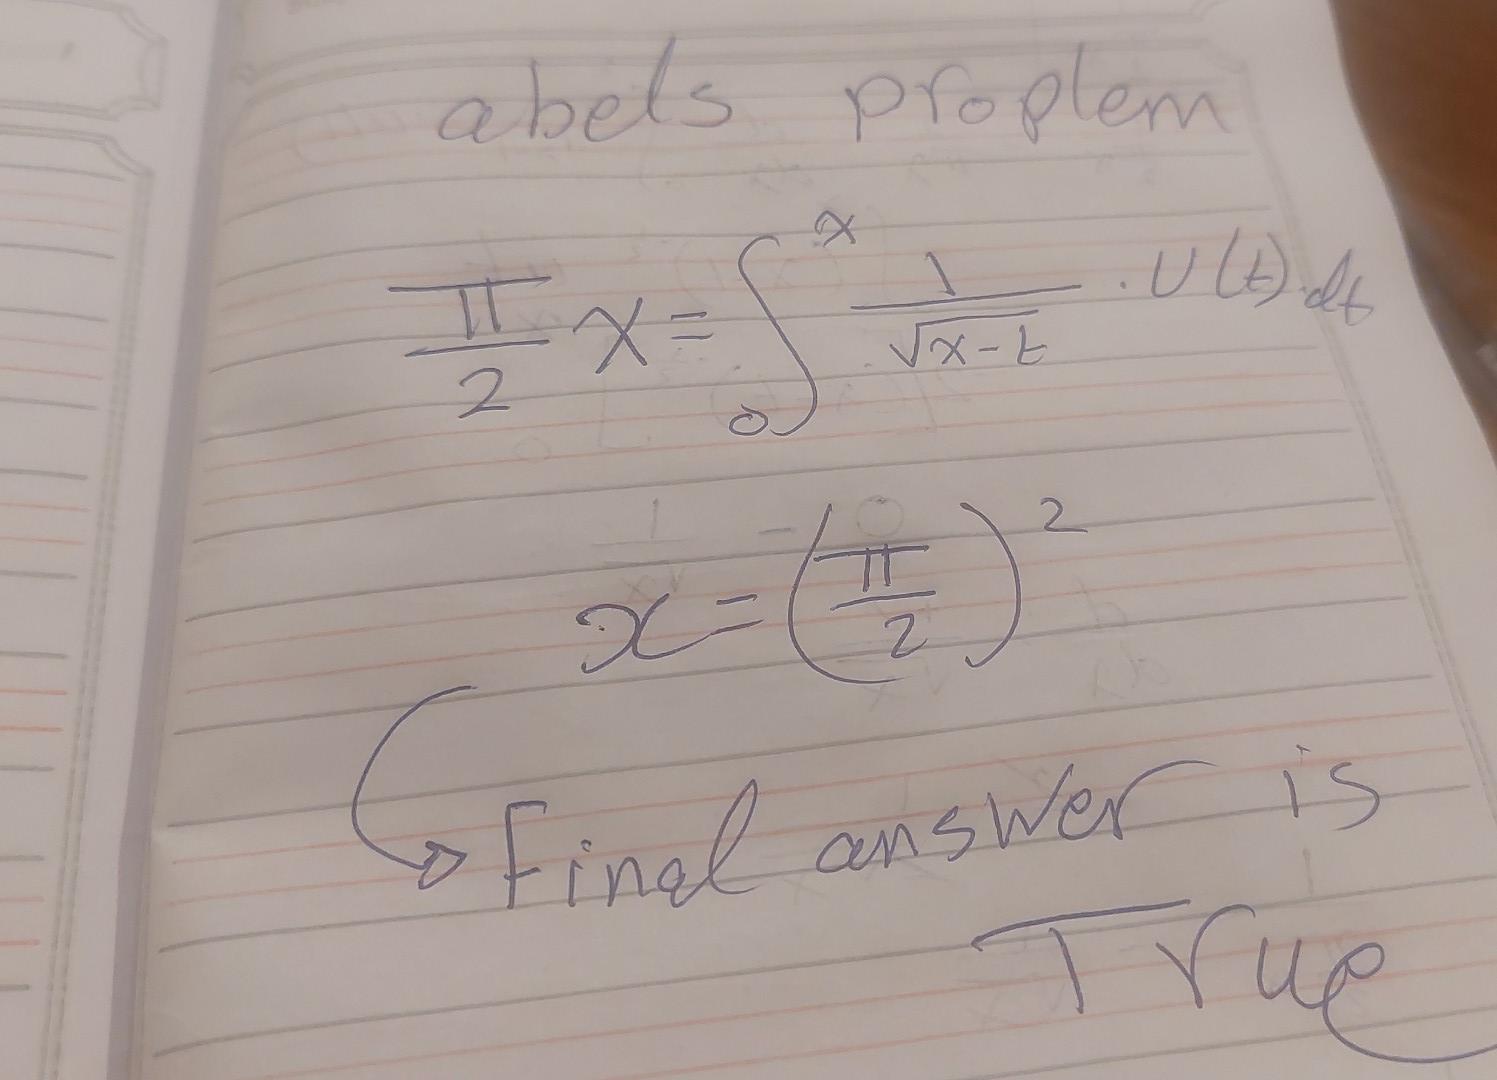 abels proplem
π/2 x = ∫₀ˣ 1/√(x-t) . U(t).dt
x = (π/2)²
Final answer is
True